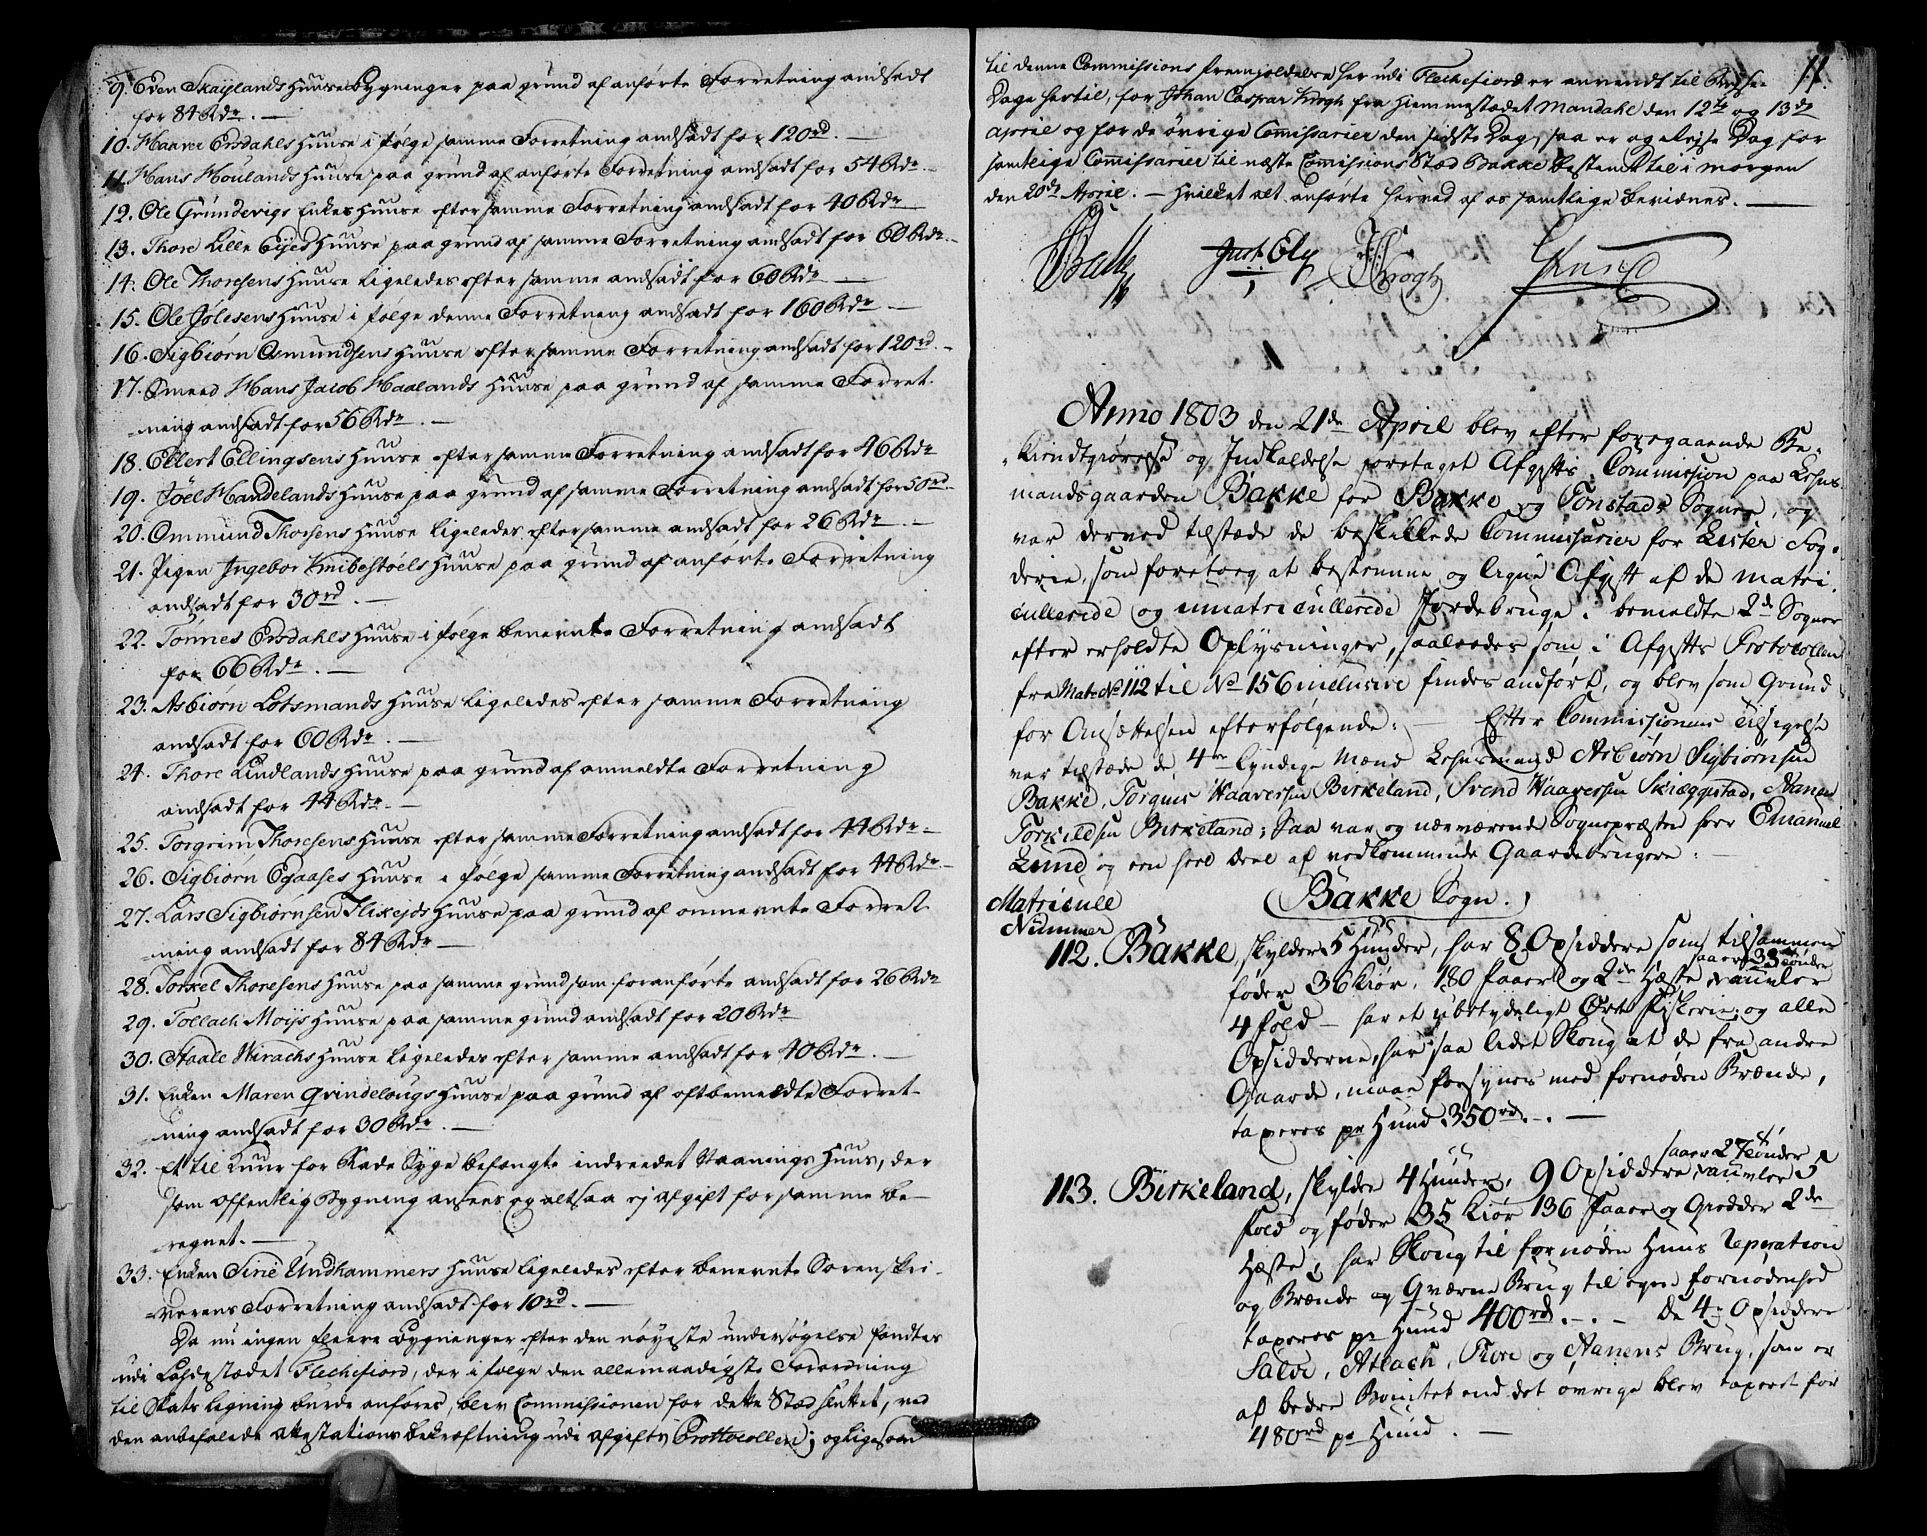 9. Eden Skaylands Huuse Bygninger paa grund af anførte Forretning andsadt
for 84 Rdr. —
10. Haaver Ersdahls Huuse i følge samme Forretning andsadt for 120rd. —
11. Hans Houlands Huuse paa grund af anførte Forretning andsadt for 54 Rdr. —
12. Ole Grundevigs Enkes Huuse efter samme Forretning andsadt for 40 Rdr —
13. Thore Lille Eyes Huuse paa grund af samme Forretning andsadt for 60 Rdr. —
14. Ole Thoresens Huuse ligeledes efter samme andsadt for 60 Rdr —
15. Ole Jølesens Huuse i følge denne Forretning andsadt for 160 Rdr —
16. Sigbiørn Omundsens Huuse efter samme Forretning andsadt for 120rd. —
17. Smeed Hans Jacob Haalands Huuse paa grund af samme Forret-
ning andsadt for 56 Rdr. —
18. Ellert Ellingsens Huuse efter samme Forretning andsadt for 46 Rdr
19. Joel Handelands Huuse paa grund af samme Forretning andsadt for 50rd. —
20. Ommund Thorsens Huuse ligeledes efter samme andsadt for 26 Rdr. —
21. Pigen Ingebor Knibestøels Huuse paa grund af anførte Forretning
andsadt for 30rd. —
22. Tønnes Ersdahls Huuse i følge benevnte Forretning andsadt
for 66 Rdr. —
23. Asbiørn Lotsmands Huuse ligeledes efter samme Forretning
andsadt for 60 Rdr. —
24. Thore Lindlands Huuse paa grund af anmeldte Forretning
andsadt for 44 Rdr. —
25. Torgrim Thoresens Huuse efter samme Forretning andsadt for 44 Rdr —
26. Sigbiørn Egaases Huuse i følge samme Forretning andsadt for 44 Rdr —
27. Lars Sigbiørnsen Flikeids Huuse paa grund af ommevnte Forret-
ning andsadt for 84 Rdr —
28. Torkel Thoresens Huuse paa samme grund som foranførte andsadt for 26 Rdr
29. Tollach Moys Huuse paa samme grund andsadt for 20 Rdr
30. Staale Virachs Huuse ligeledes efter samme andsadt for 40 Rdr. —
31. Enken Maren Qvindelougs Huuse paa grund af oftbemeldte Forret-
ning andsadt for 30 Rdr. —
32. Et til Kuur for Rade Syge befængte indreedet Vaanings Huus, der
som offentlig Bygning ansees og altsaa ej afgift for samme be-
regnet. —
33. Enken Sirie Undhammers Huuse ligeledes efter benevnte Sorenskri-
verens Forretning andsadt for 10rd. —
Da nu ingen fleere Bygninger efter den nøyeste undersøgelse fandtes
udi Ladestædet Flechefiord, der i følge den allernaadigste Forordning
til Skats ligning burde anføres, blev Commissionen for dette Stæd sluttet, ved
den anbefalede Attestations bekræftning udi Afgifts Prottocollen; og ligesom
11.
til denne Commissions fremholdelse her udi Flechefiord er anvendt til Reyse
Dage hertil, for Johan Caspar Krogh fra hiemmestædet Mandahl den 12te og 13de
april og for de øvrige Commissarier den sidste Dag, saa er og Reyse Dag for
samtlige Commissarier til næste Commissions Stæd Bakke bestemt til i morgen
den 20de April. — Hvilket alt anførte herved af os samtlige bevidnes. —
Just Ely Krogh
Anno 1803 den 21de April blev efter foregaaende Be-
kiendtgiørelse og Indkaldelse foretaget Afgifts Commission paa Lehns
mandsgaarden Bakke for Bakke og Tonstads Sogner, og
var derved tilstæde de beskikkede Commissarier for Lister Fog-
derie, som foretoeg at bestemme og ligne Afgift af de matri-
cullerede og umatricullerede Jordebruge i bemeldte 2de Sogner
efter erholdte Oplysninger, saaledes som i Afgifts Protocollen
fra Mat: No 112 til No 156 inclusive findes andført, og blev som Grund
for Ansættelsen efterfølgende: — Efter Commissionens Tilsigelse
var tilstæde de 4re kyndige Mænd Lehnsmand Asbiørn Sigbiørnsen
Bakke, Torquis Haaversen Birkeland, Svend Haaversen Skiæggestad, Aanen
Torkildsen Birkeland; Saa var og nærværende Sognepræsten herr Emanuel
Lund og een heel deel af vedkommende Gaardebrugere:
Bakke Sogn.
Matricull
Nummer
112. Bakke, skylder 5 Huuder, har 8 Opsiddere som tilsammen
føder 36 Kiør, 180 Faarer og 2de Heste saaer 33 Tønder, avler
4 fold — har et ubetydeligt Ørret Fiskerie; og alle
Opsidderne har saa lidet Skoug at de fra andre
Gaarde, maae forsynes med fornøden Brænde,
taxeres pr Huud 350rd. — . —
113. Birkeland, skylder 4 Huuder, 9 Opsiddere saaer 27 Tønder avler 5
fold og føder 35 Kiør 136 Faarer og Gieder 2de
Heste, har Skoug til fornøden Huus Reparation
og Brænde og Qværne Brug til egen fornødenhed
taxeres pr Huud 400rd. — . — De 4re Opsiddere
Salve, Atlach, Tore og Aanens Brug, som er
af bedre Bonitet end det øvrige blev taxeret for
480rd pr Huud. —